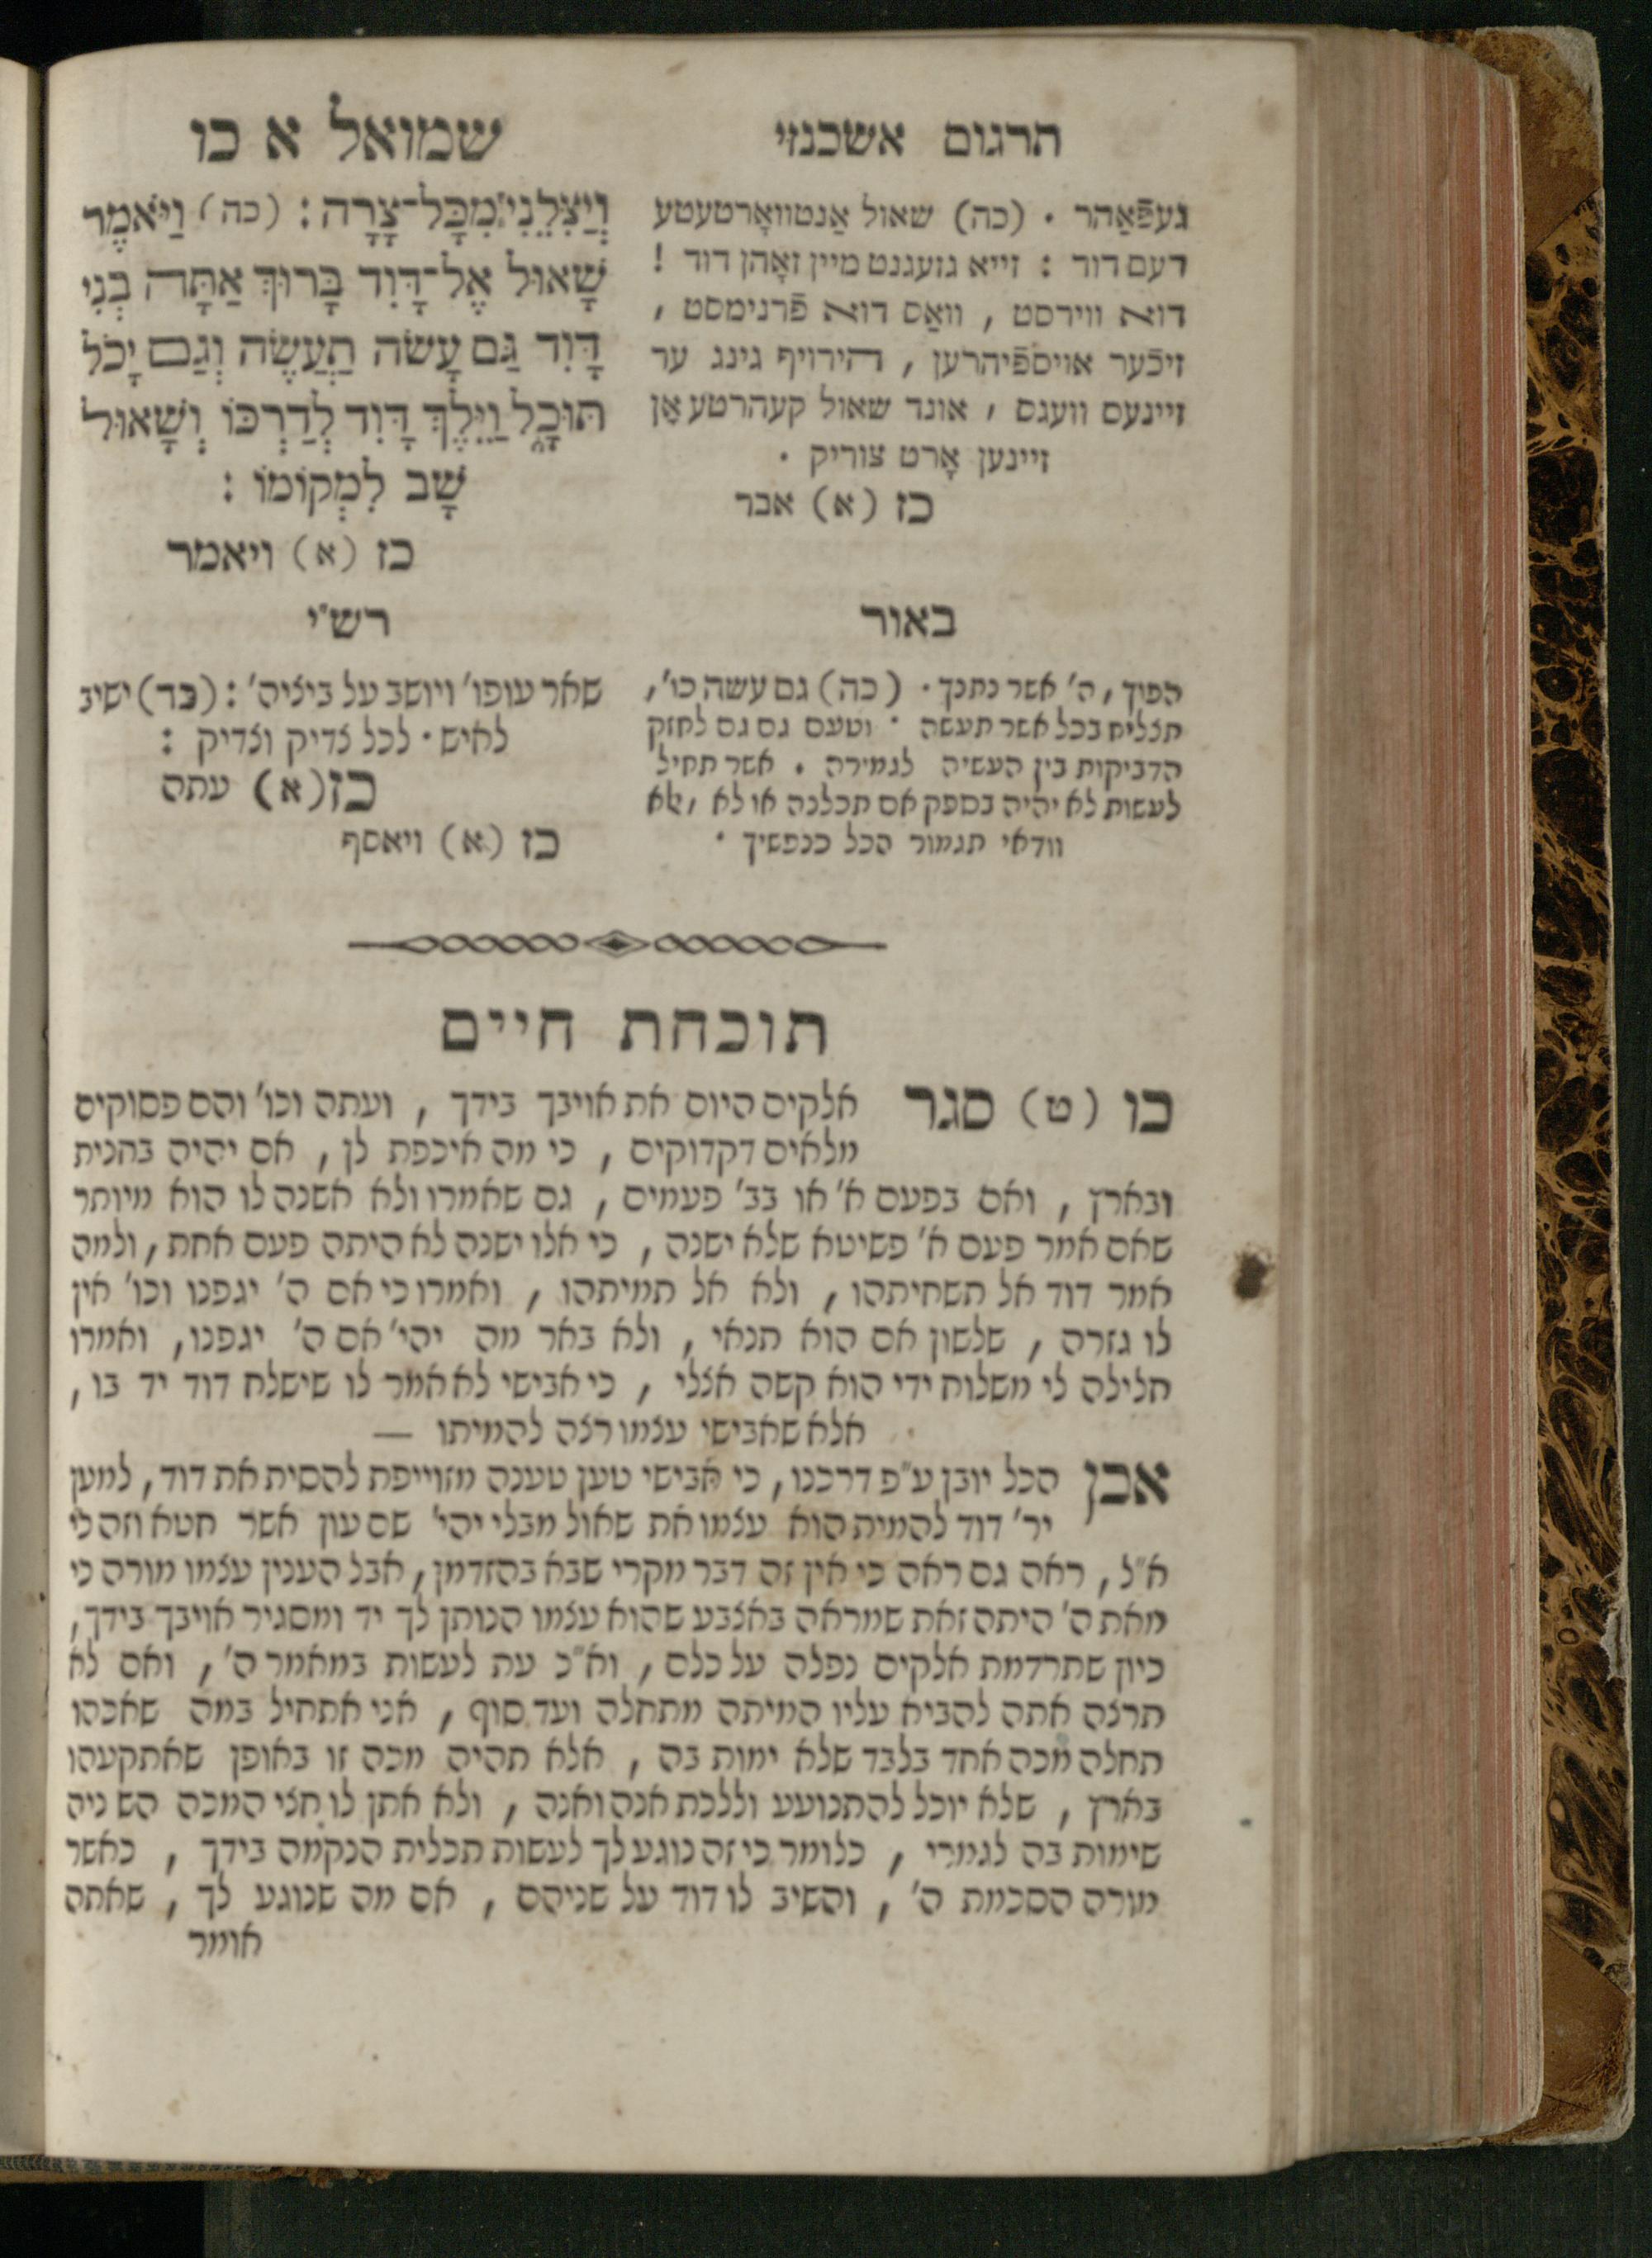 תרגום אשכנזי
שמואל א כו
וְיַצִּלֵנִי מִכָּל־צָרָה : (כה) וַיֹּאמֶר
שָׁאוּל אֶל־דָּוִד בָּרוּךְ אַתָּה בְּנִי
דָּוִד גַּם עָשֹׂה תַעֲשֶׂה וְגַם יָכֹל
תּוּכָל וַיֵּלֶךְ דָּוִד לְדַרְכּוֹ וְשָׁאוּל
שָׁב לִמְקוֹמוֹ :
כז (א) ויאמר
געפֿאַהר . (כה) שאול אַנטוואָרטעטע
דעם דוד : זייא גזעגנט מיין זאָהן דוד !
דוא ווירסט , וואַס דוא פֿרנימסט ,
זיכֿער אויספֿיהרען , היריויף גינג ער
זיינעם וועגס , אונד שאול קעהרטע אַן
זיינען אָרט צוריק .
כז (א) אבר
רש"י
שאר עופו' ויושב על ביציה' : (כד) ישיב
לאיש . לכל צדיק וצדיק :
כז (א) עתה
כז (א) ויאסף
באור
הפיך , ה' אשר נתנך . (כה) גם עשה כו' ,
תצליח בכל אשר תעשה . וטעם גם גם לחזק
הדביקות בין העשיה לגמירה . אשר תחיל
לעשות לא יהיה בספק אם תכלנה או לא ,
וודאי תגמור הכל כנפשיך .
תוכחת חיים
כו (ט) סגר אלקים היום את אויבך בידך , ועתה וכו' והם פסוקים
מלאים דקדוקים , כי מה איכפת לן , אם יהיה בחנית
ובארץ , ואם בפעם א' או בב' פעמים , גם שאמרו ולא אשנה לו הוא מיותר
שאם אמר פעם א' פשיטא שלא ישנה , כי אלו ישנה לא היתה פעם אחת , ולמה
אמר דוד אל תשחיתהו , ולא אל תמיתהו , ואמרו כי אם ה' יגפנו וכו' אין
לו גזרה , שלשון אם הוא תנאי , ולא באר מה יהי' אם ה' יגפנו , ואמרו
חלילה לי משלוח ידי הוא קשה אצלי , כי אבישי לא אמר לו שישלח דוד יד בו ,
אלא שאבישי עצמו רצה להמיתו —
אכן הכל יובן ע"פ דרכנו , כי אבישי טען טענה מזוייפת להסית את דוד , למען
יר' דוד להמית הוא עצמו את שאול מבלי יהי' שם עון אשר חטא וזה לי
א"ל , ראה גם ראה כי אין זה דבר מקרי שבא בהזדמן , אבל הענין עצמו מורה כי
מאת ה' היתה זאת שמראה באצבע שהוא עצמו הנותן לך יד ומסגיר אויבך בידך ,
כיון שתרדמת אלקים נפלה על כלם , וא"כ עת לעשות במאמר ה' , ואם לא
תרצה אתה להביא עליו המיתה מתחלה ועד סוף , אני אתחיל במה שאכהו
תחלה מכה אחד בלבד שלא ימות בה , אלא תהיה מכה זו באופן שאתקעהו
בארץ , שלא יוכל להתנועע וללכת אנה ואנה , ולא אתן לו חצי המכה השניה
שימות בה לגמרי , כלומר כי זה נוגע לך לעשות תכלית הנקמה בידך , כאשר
מורה הסכמת ה' , והשיב לו דוד על שניהם , אם מה שנוגע לך , שאתה
אומר